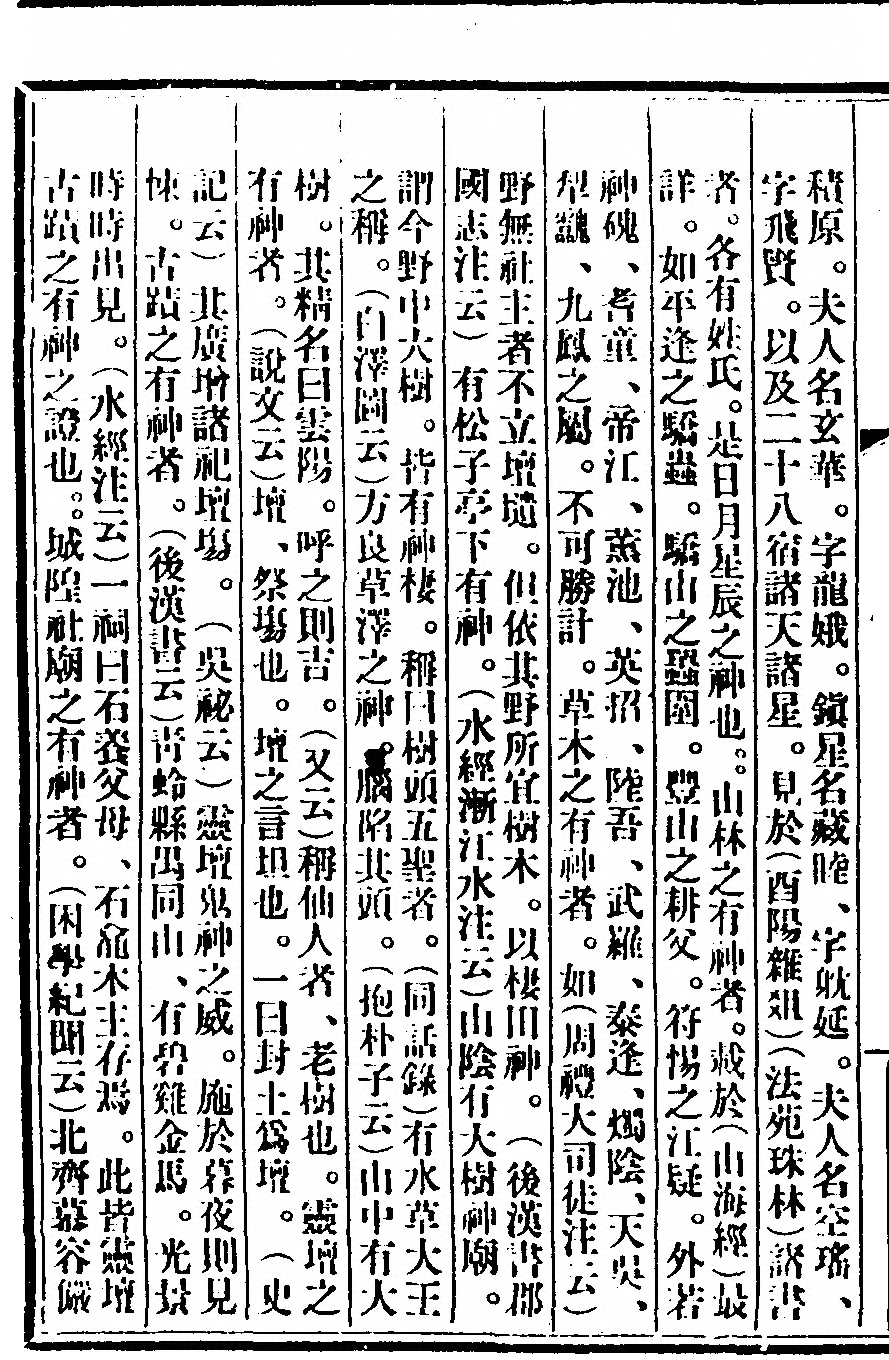 積原。夫人名玄華。字龍娥。鎭星名藏睦、字耽延。夫人名空瑤、
字飛賢。以及二十八宿諸天諸星。見於(酉陽雜俎)(法苑珠林)諸書
者。各有姓氏。是日月星辰之神也。。山林之有神者。載於(山海經)最
詳。如平逢之驕蟲。驕山之蟲圍。豐山之耕父。符惕之江疑。外若
神磈、耆童、帝江、薰池、英招、陸吾、武羅、泰逢、燭陰、天吳、
犂、九鳳之屬。不可勝計。草木之有神者。如(周禮大司徒注云)
野無社主者不立壇壝。但依其野所宜樹木。以棲田神。(後漢書郡
國志注云)有松子亭下有神。(水經漸江水注云)山陰有大樹神廟。
謂今野中大樹。皆有神棲。稱曰樹頭五聖者。(同話錄)有水草大王
之稱。(白澤圖云)方良草澤之神。腦陷其頭。(抱朴子云)山中有大
樹。其精名曰雲陽。呼之則吉。(又云)稱仙人者、老樹也。靈壇之
有神者。(說文云)壇、祭塲也。壇之言坦也。一曰封土爲壇。(史
記云)其廣增諸祀壇塲。(吳祕云)靈壇鬼神之威。施於暮夜則見
悚。古蹟之有神者。(後漢書云)靑蛉縣禺同山、有碧雞金馬。光景
時時出見。(水經注云)一祠曰石養父母、石龕木主存焉。此皆靈壇
古蹟之有神之證也。。城隍社廟之有神者。(困學紀聞云)北齊慕容儼